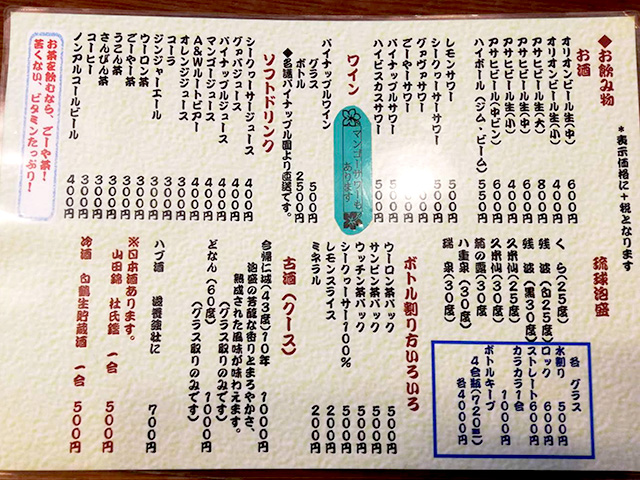 ◆お飲み物
＊表示価格に＋税となります
お酒
オリオンビール生(中) 600円
オリオンビール生(小) 400円
アサヒビール生(大) 800円
アサヒビール生(中) 600円
アサヒビール生(小) 400円
アサヒビール(中ビン) 600円
ハイボール(ジム・ビーム) 550円
レモンサワー 500円
シークヮーサーサワー 500円
グァヴァサワー 500円
ごーやーサワー 500円
パイナップルサワー 500円
ハイビスカスサワー 500円
マンゴーサワーもあります
ワイン
パイナップルワイン
グラス 500円
ボトル 2500円
◆名護パイナップル園より直送です。
ソフトドリンク
シークヮーサージュース 400円
グァバジュース 400円
パイナップルジュース 400円
マンゴージュース 400円
A＆Wルートビアー 400円
オレンジジュース 300円
コーラ 300円
ジンジャーエール 300円
ウーロン茶 300円
ごーやー茶 300円
うこん茶 300円
さんぴん茶 300円
コーヒー 300円
ノンアルコールビール 400円
お茶を飲むなら、ごーや茶！
苦くない、ビタミンたっぷり！
琉球泡盛
くら(25度)
残波(白25度)
残波(黒30度)
久米仙(25度)
久米仙(30度)
菊の露(30度)
八重泉(30度)
瑞泉(30度)
各 グラス
水割り 500円
ロック 600円
ストレート 600円
カラカラ1合 1000円
ボトルキープ
4合瓶(720ml)
各4000円
ボトル割り方いろいろ
ウーロン茶パック 500円
サンピン茶パック 500円
ウッチン茶パック 500円
シークヮーサー100％ 500円
レモンスライス 200円
ミネラル 200円
古酒(クース)
今帰仁城(43度)10年 1000円
泡盛の芳醇な香りとまろやかさ、
熟成された風味が味わえます。
(グラス取りのみです)
どなん(60度) 1000円
(グラス取りのみです)
ハブ酒 滋養強壮に 700円
※日本酒あります。
山田錦 杜氏鑑 一合 500円
冷酒 白鶴生貯蔵酒 一合 500円